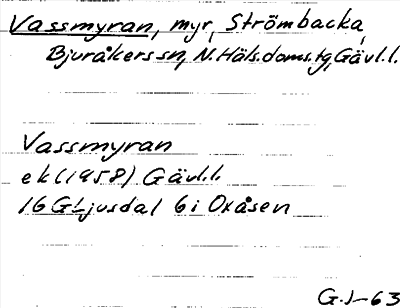 Vassmyran, myr, Strömbacka,
Bjuråkers sn, N. Häls. doms. tg, Gävl. l.
Vassmyran
ek (1958) Gävl.l.
16 G Ljusdal 6 i Oxåsen
G.J-63